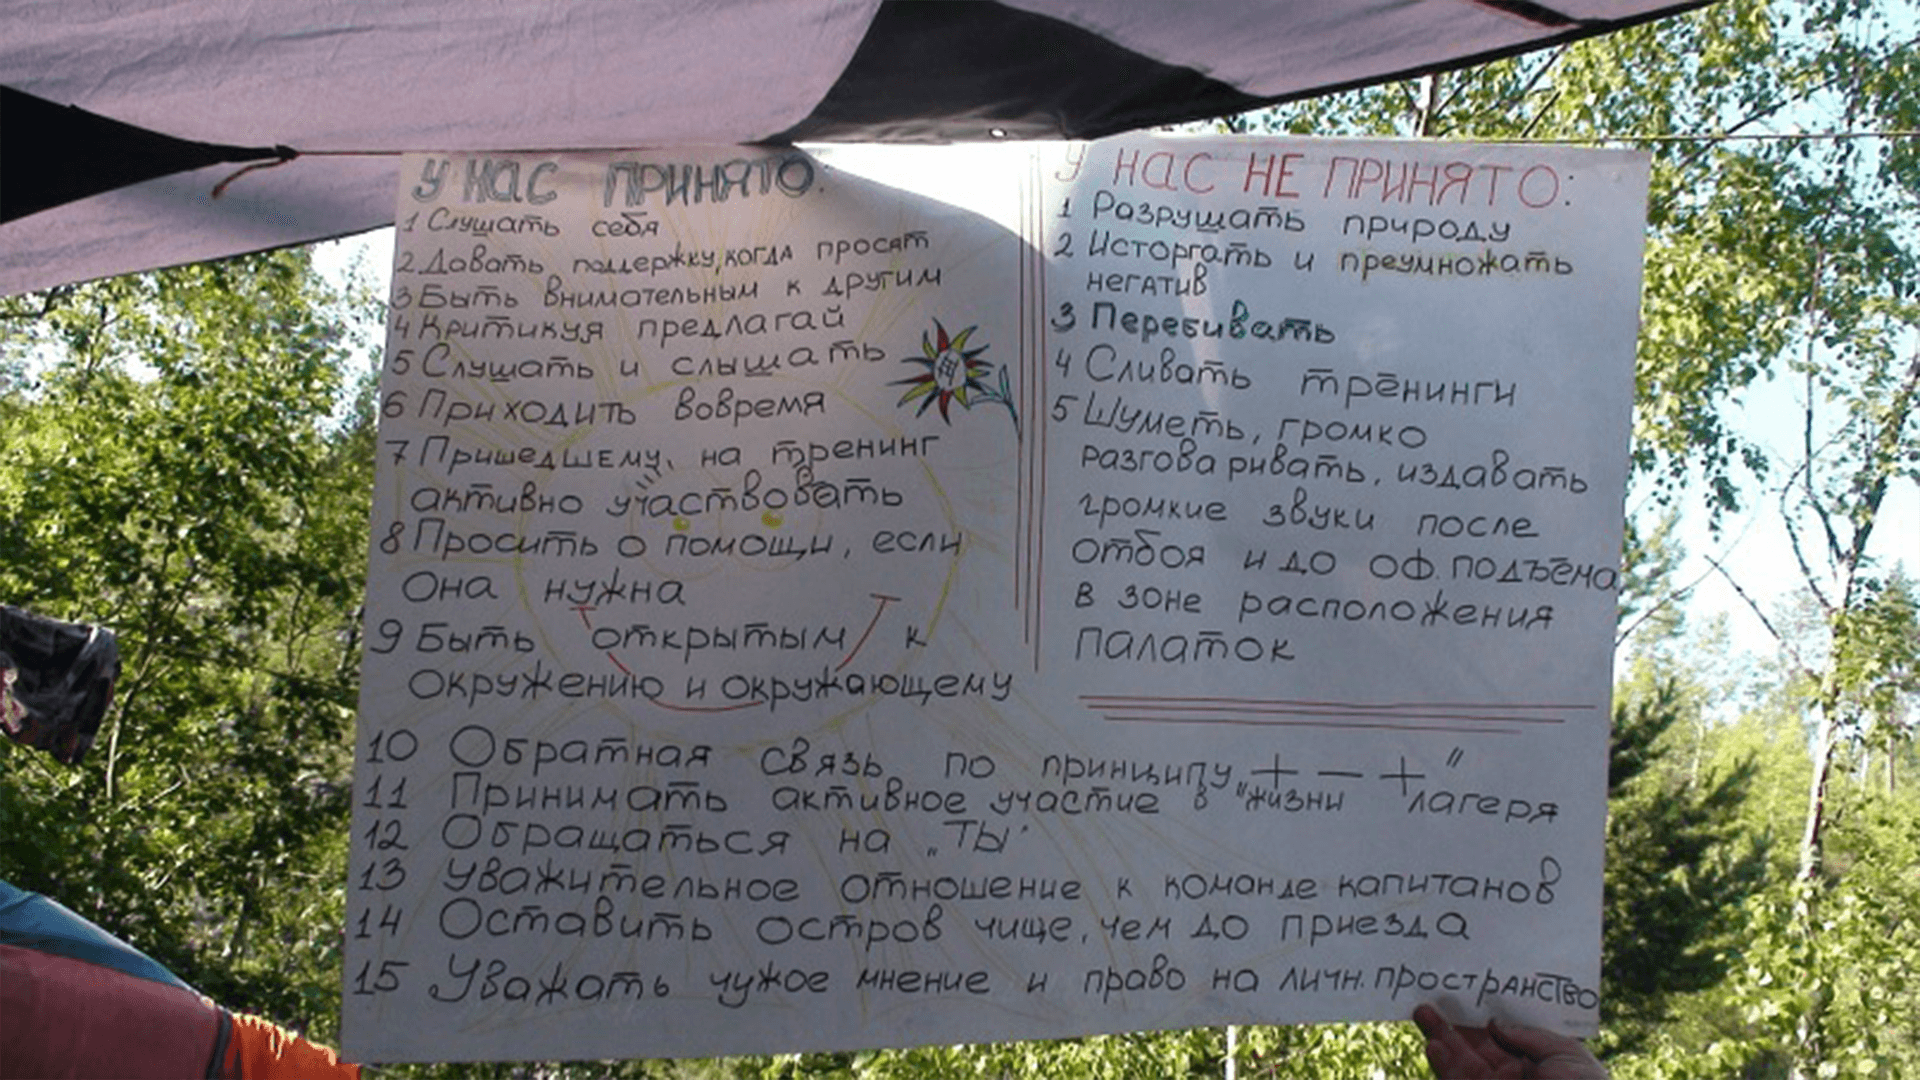 У НАС ПРИНЯТО:
1 Слушать себя
2. Давать поддержку, когда просят
3 Быть внимательным к другим
4 Критикуя предлагай
5 Слушать и слышать
6 Приходить вовремя
7 Пришедшему, на тренинг
активно участвовать
8 Просить о помощи, если
она нужна
9 Быть открытым к
окружению и окружающему
10 Обратная связь по принципу „+ – +"
11 Принимать активное участие в "жизни" лагеря
12 Обращаться на „ТЫ"
13 Уважительное отношение к команде капитанов
14 Оставить остров чище, чем до приезда
15 Уважать чужое мнение и право на личн. пространство
У НАС НЕ ПРИНЯТО:
1 Разрушать природу
2 Исторгать и преумножать
негатив
3 Перебивать
4 Сливать тренинги
5 Шуметь, громко
разговаривать, издавать
громкие звуки после
отбоя и до оф. подъёма
в зоне расположения
палаток